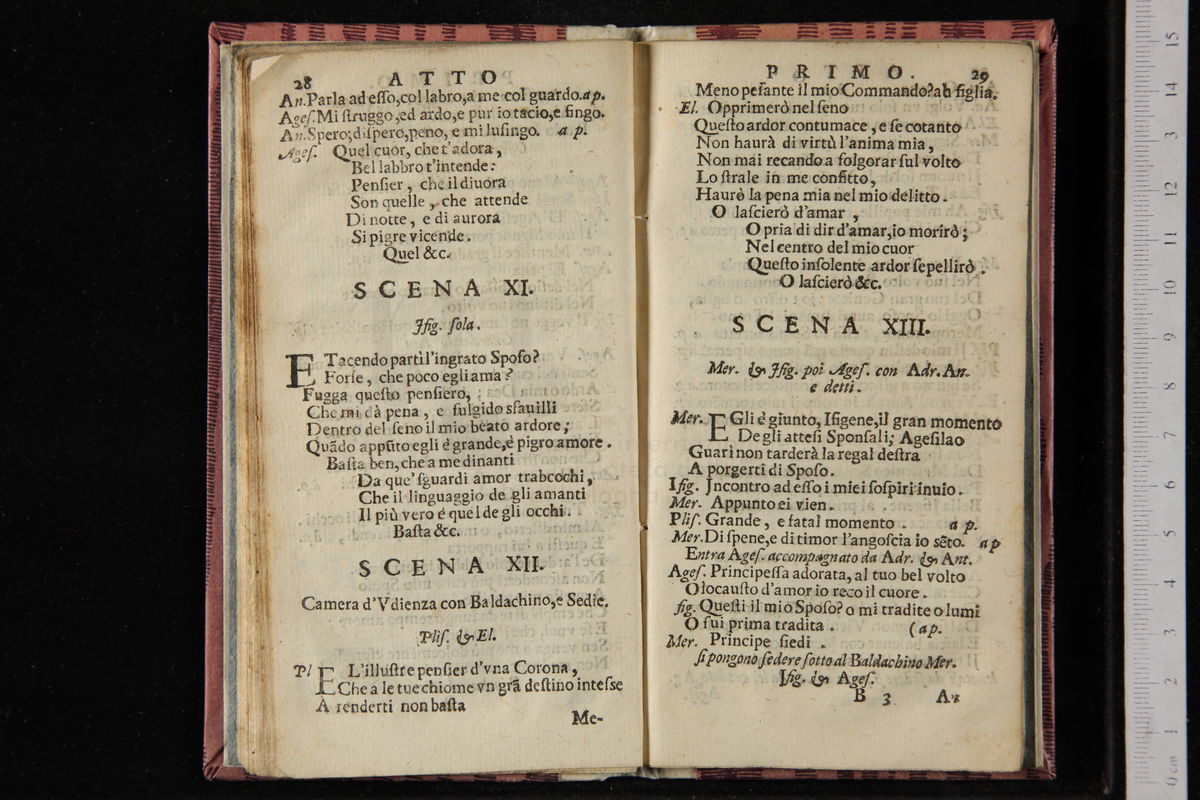 28 ATTO
An. Parla ad eſſo, col labro, a me col guardo. ap.
Ageſ. Mi ſtruggo, ed ardo, e pur io tacio, e fingo.
An. Spero; diſpero, peno, e mi luſingo. a p.
Ageſ. Quel cuor, che t'adora,
Bel labbro t'intende:
Penſier, che il divora
Son quelle, che attende
Di notte, e di aurora
Si pigre vicende.
Quel &c.
SCENA XI.
Iſig. ſola.
E Tacendo partì l'ingrato Spoſo?
Forſe, che poco egli ama?
Fugga queſto penſiero,
Che mi dà pena, e fulgido sfauilli
Dentro del ſeno il mio beato ardore;
Quãdo appũto egli è grande, è pigro amore.
Baſta ben, che a me dinanti
Da que' ſguardi amor trabcochi,
Che il linguaggio de gli amanti
Il più vero é quel de gli occhi.
Baſta &c.
SCENA XII.
Camera d'Vdienza con Baldachino, e Sedie.
Pliſ. & El.
Pl E L'illuſtre penſier d'vna Corona,
Che a le tue chiome vn grã deſtino inteſse
A renderti non baſta
Me-
PRIMO. 29
Meno peſante il mio Commando? ah figlia.
El. Opprimerò nel ſeno
Queſto ardor contumace, e ſe cotanto
Non haurà di virtù l'anima mia,
Non mai recando a folgorar ſul volto
Lo ſtrale in me confitto,
Haurò la pena mia nel mio delitto.
O laſcierò d'amar,
O pria di dir d'amar, io morirò;
Nel centro del mio cuor
Queſto inſolente ardor ſepellirò.
O laſcierò &c.
SCENA XIII.
Mer. & Iſig. poi Ageſ. con Adr. An.
e detti.
Mer. E Gli é giunto, Iſigene, il gran momento
De gli atteſi Sponſali; Ageſilao
Guarì non tarderà la regal deſtra
A porgerti di Spoſo.
Iſig. Incontro ad eſſo i miei ſoſpiri inuio.
Mer. Appunto ei vien.
Pliſ. Grande, e fatal momento. a p.
Mer. Di ſpene, e di timor l'angoſcia io sẽto. ap
Entra Ageſ. accompagnato da Adr. & Ant.
Ageſ. Principeſſa adorata, al tuo bel volto
Olocauſto d'amor io reco il cuore.
ſig. Queſti il mio Spoſo? o mi tradite o lumi
O fui prima tradita. (ap.
Mer. Principe ſiedi.
ſi pongono ſedere ſotto al Baldachino Mer.
Iſig. & Ageſ.
B 3